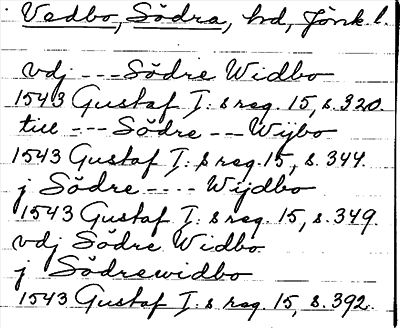 Vedbo, Södra, hd, Jönk. l.
vdj --- Södre Widbo
1543 Gustaf I: s reg. 15, s. 320.
till --- Södre --- Wijbo
1543 Gustaf I: s reg. 15, s. 344.
j Södre ---- Wijdbo
1543 Gustaf I: s reg. 15, s. 349.
vdj Södre Widbo
j Södrewidbo
1543 Gustaf I: s reg. 15, s. 392.